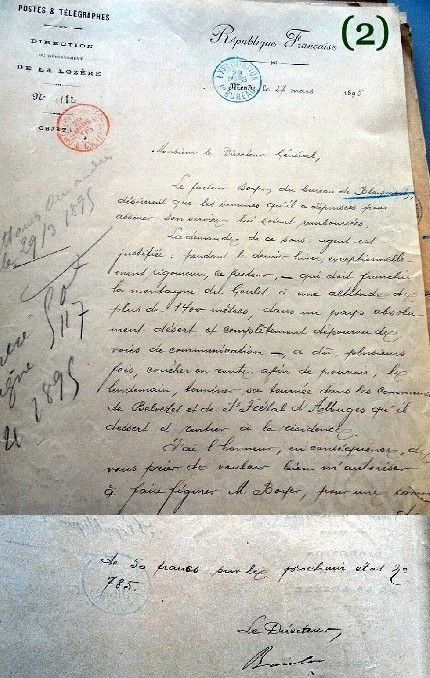 POSTES & TÉLÉGRAPHES
DIRECTION
DU DÉPARTEMENT
DE LA LOZÈRE
N°
OBJET:
(2)
République Française
Mende, le 27 mars 1895
Monsieur le Directeur Général,
Le facteur Boyer du bureau de Bleymard,
désirerait que les sommes qu'il a dépensées pour
assurer son service lui soient remboursées.
La demande de ce sous-agent est
justifiée: pendant le dernier hiver, exceptionnelle
ment rigoureux, ce facteur, — qui doit franchir
la montagne du Goulet à une altitude de
plus de 1400 mètres, dans un pays absolu-
ment désert et complètement dépourvu de
voies de communication —, a dû, plusieurs
fois, coucher en route, afin de pouvoir, le
lendemain, terminer sa tournée dans les communes
de Belvezet et de St Frézal d'Albuges qu'il
dessert et rentrer à la résidence.
J'ai l'honneur, en conséquence, de
vous prier de vouloir bien m'autoriser
à faire figurer M. Boyer, pour une somme
de 50 francs sur le prochain état N°
785.
Le Directeur,
le 29/3 1895
1895